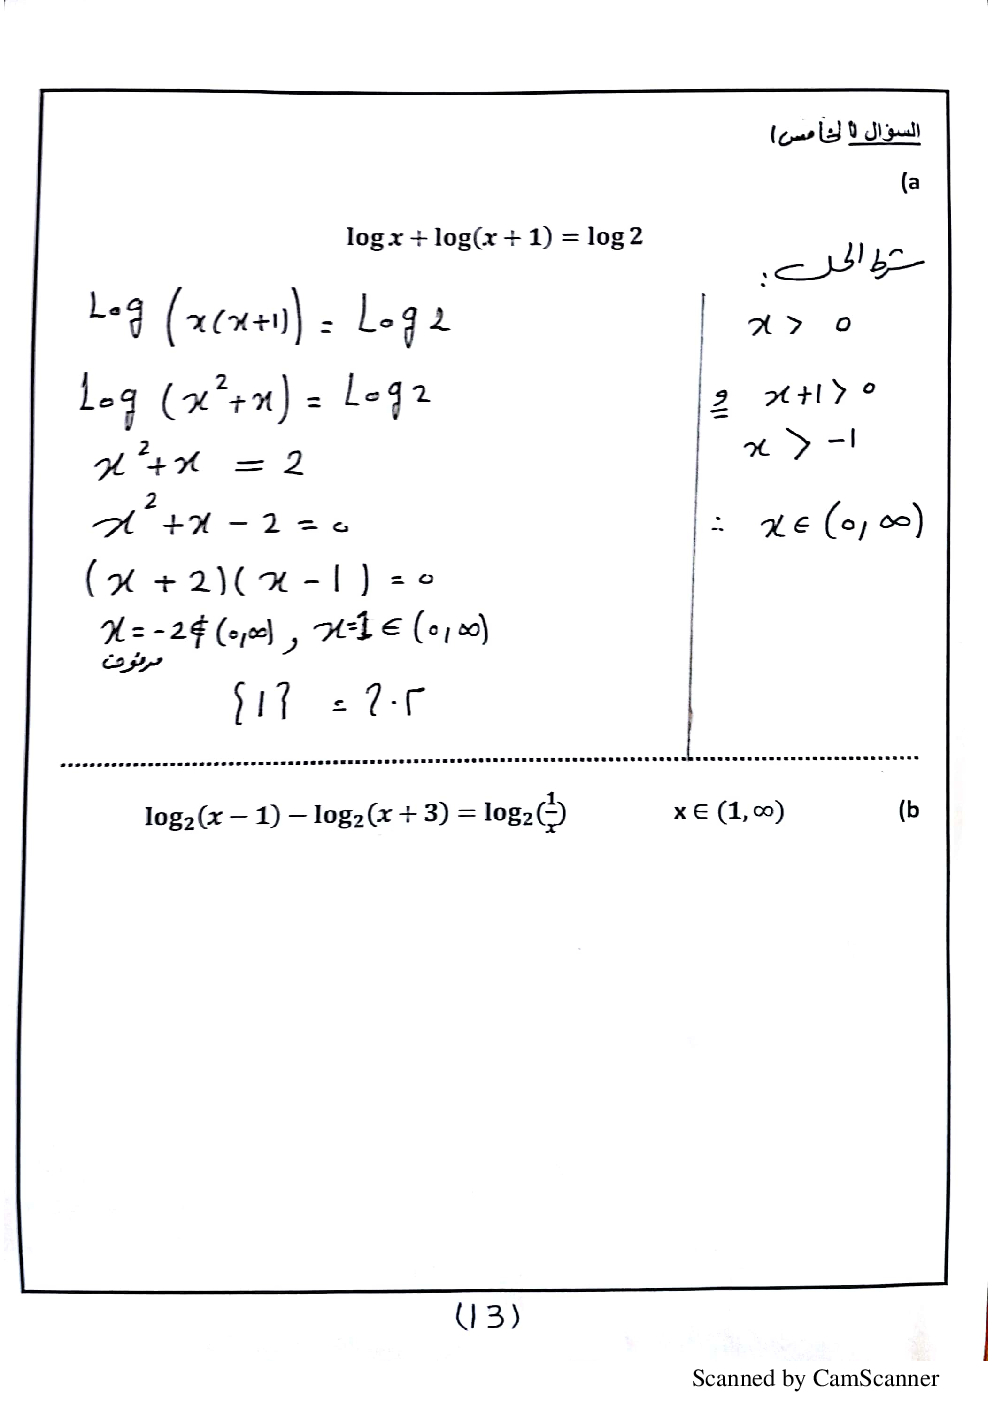 السؤال الخامس
(a
log x + log(x + 1) = log 2
شرط الحل :
x > 0
و x+1 > 0
x > -1
∴ x ∈ (0, ∞)
Log (x(x+1)) = Log 2
Log (x²+x) = Log 2
x²+x = 2
x²+x - 2 = 0
(x + 2)(x - 1) = 0
x = -2 ∉ (0,∞) , x=1 ∈ (0,∞)
مرفوض
{1} = ح.م
log₂(x − 1) − log₂(x + 3) = log₂(1/x) x ∈ (1, ∞) (b
(13)
Scanned by CamScanner